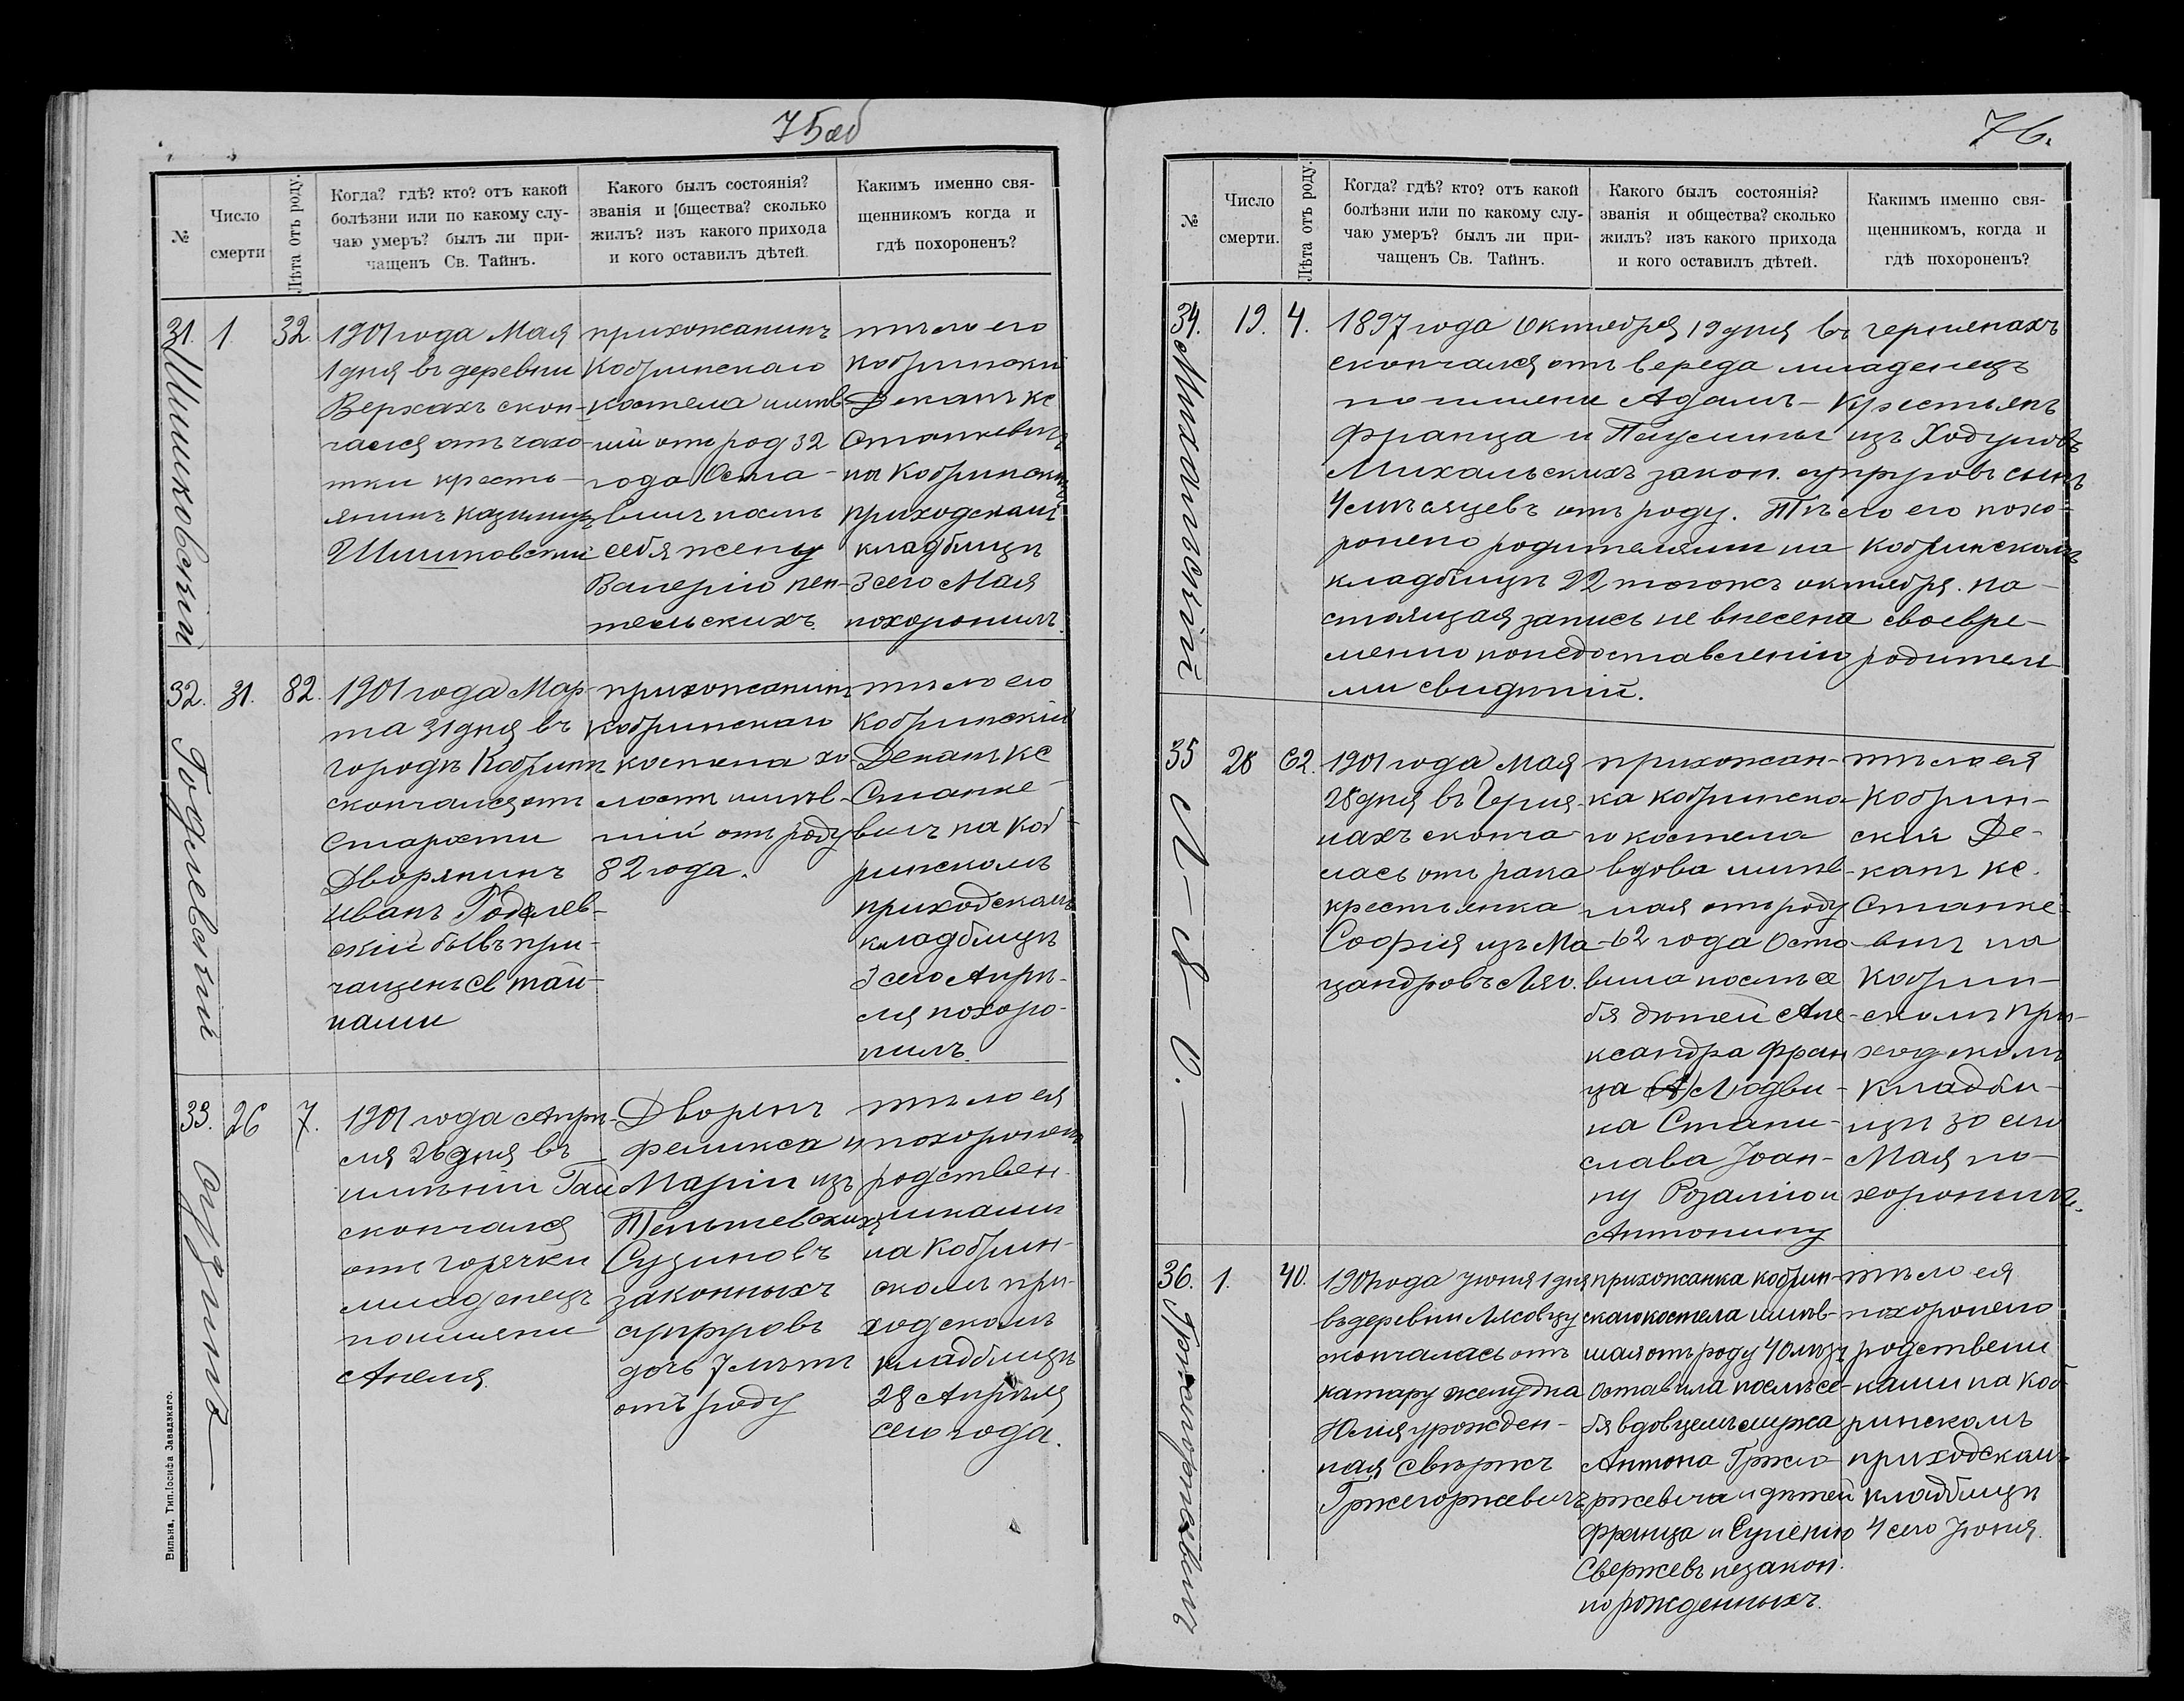 75об
№
Число
смерти
Лѣта отъ роду.
Когда? гдѣ? кто? отъ какой
болѣзни или по какому слу-
чаю умеръ? былъ ли при-
чащенъ Св. Тайнъ.
Какого былъ состоянія?
званія и бщества? сколько
жилъ? изъ какого прихода
и кого оставилъ дѣтей.
Какимъ именно свя-
щенникомъ когда и
гдѣ похороненъ?
31.
Шишковскій
1.
32
1901 года Мая
1 дня въ деревни
Верхахъ скон-
чался отъ чахо-
тки кресть-
янинъ Казимиръ
Шишковскій
прихожанинъ
Кобринскаго
костела имѣв-
шій отъ род 32
года Оста-
вилъ послѣ
себя жену
Валерію
тельскихъ.
тѣло его
Кобринскій
Деканъ Кс
Станкевичъ
на Кобринскомъ
приходскомъ
кладбищѣ
3 сего Мая
похоронилъ.
32.
Годлевскій
31.
82.
1901 года Мар-
та 31 дня въ
городѣ Кобринѣ
скончался отъ
Старости
Дворянинъ
Иванъ Годлев-
скій бывъ при-
чащенъ Св Тай-
нами
прихожанинъ
Кобринскаго
костела хо-
лостъ имѣв-
шій отъ роду
82 года.
тѣло его
Кобринскій
Деканъ Кс
Станке-
вичъ на Коб-
ринскомъ
приходскомъ
кладбищѣ
3 сего Апрѣ-
ля похоро-
нилъ.
33.
Сузинъ
26
7.
1901 года Апрѣ-
ля 26 дня въ
имѣніи Гай
скончался
отъ горячки
младенецъ
по имяни
Анеля.
Дворянъ
Феликса и
Маріи изъ
Тельшевскихъ
Сузиновъ
законныхъ
супруговъ
дочь 7 лѣтъ
отъ роду
тѣло ея
похоронено
родствен-
никами
на Кобрин-
скомъ при-
ходскомъ
кладбищѣ
28 Апрѣля
сего года.
Вильна, Тип. Іосифа Завадзкаго.
76.
№
Число
смерти.
Лѣта отъ роду.
Когда? гдѣ? кто? отъ какой
болѣзни или по какому слу-
чаю умеръ? былъ ли при-
чащенъ Св. Тайнъ.
Какого былъ состоянія?
званія и общества? сколько
жилъ? изъ какого прихода
и кого оставилъ дѣтей.
Какимъ именно свя-
щенникомъ, когда и
гдѣ похороненъ?
34.
Михальскій
19.
4.
1897 года Октября 19 дня въ
скончался отъ вереда младенецъ
по имени Адамъ – Крестьянъ
Франца и Паулины изъ
Михальскихъ закон. супруговъ сынъ
4 мѣсяцевъ отъ роду. Тѣло его похо-
ронено родителями на Кобринскомъ
кладбищѣ 22 тогожъ октября. На-
стоящая запись не внесена своевре-
менно по недоставленію родителя-
ми свидѣній.
35
28
62.
1901 года Мая
28 дня въ
нахъ сконча-
лась отъ рака
крестьянка
Софія изъ Ма-
цандровъ
прихожан-
ка Кобринска-
го костела
вдова имѣв-
шая отъ роду
62 года Оста-
вила послѣ се
бя дѣтей Але-
ксандра Фран
ца Людви-
ка Стани-
слава Іоан-
ну Розалію и
Антонину
тѣло ея
Кобрин-
скій Де-
канъ Кс.
Станке-
вичъ на
Кобрин-
скомъ при-
ходскомъ
кладби-
щѣ 30 сего
Мая по-
хоронилъ.
36.
Гржегоржевичъ
1.
40.
1901 года Іюня 1 дня
въ деревни
скончалась отъ
катару желудка
Юлія урожден-
ная Свержъ
Гржегоржевичъ
прихожанка Кобрин-
скаго костела имѣв-
шая отъ роду 40 лѣтъ
Оставила послѣ се-
бя вдовцемъ мужа
Антона Гржего-
ржевича и дѣтей
Франца и Еугенію
Свержевъ незакон.
но рожденныхъ.
тѣло ея
похоронено
родственни
ками на Коб-
ринскомъ
приходскомъ
кладбищѣ
4 сего Іюня.